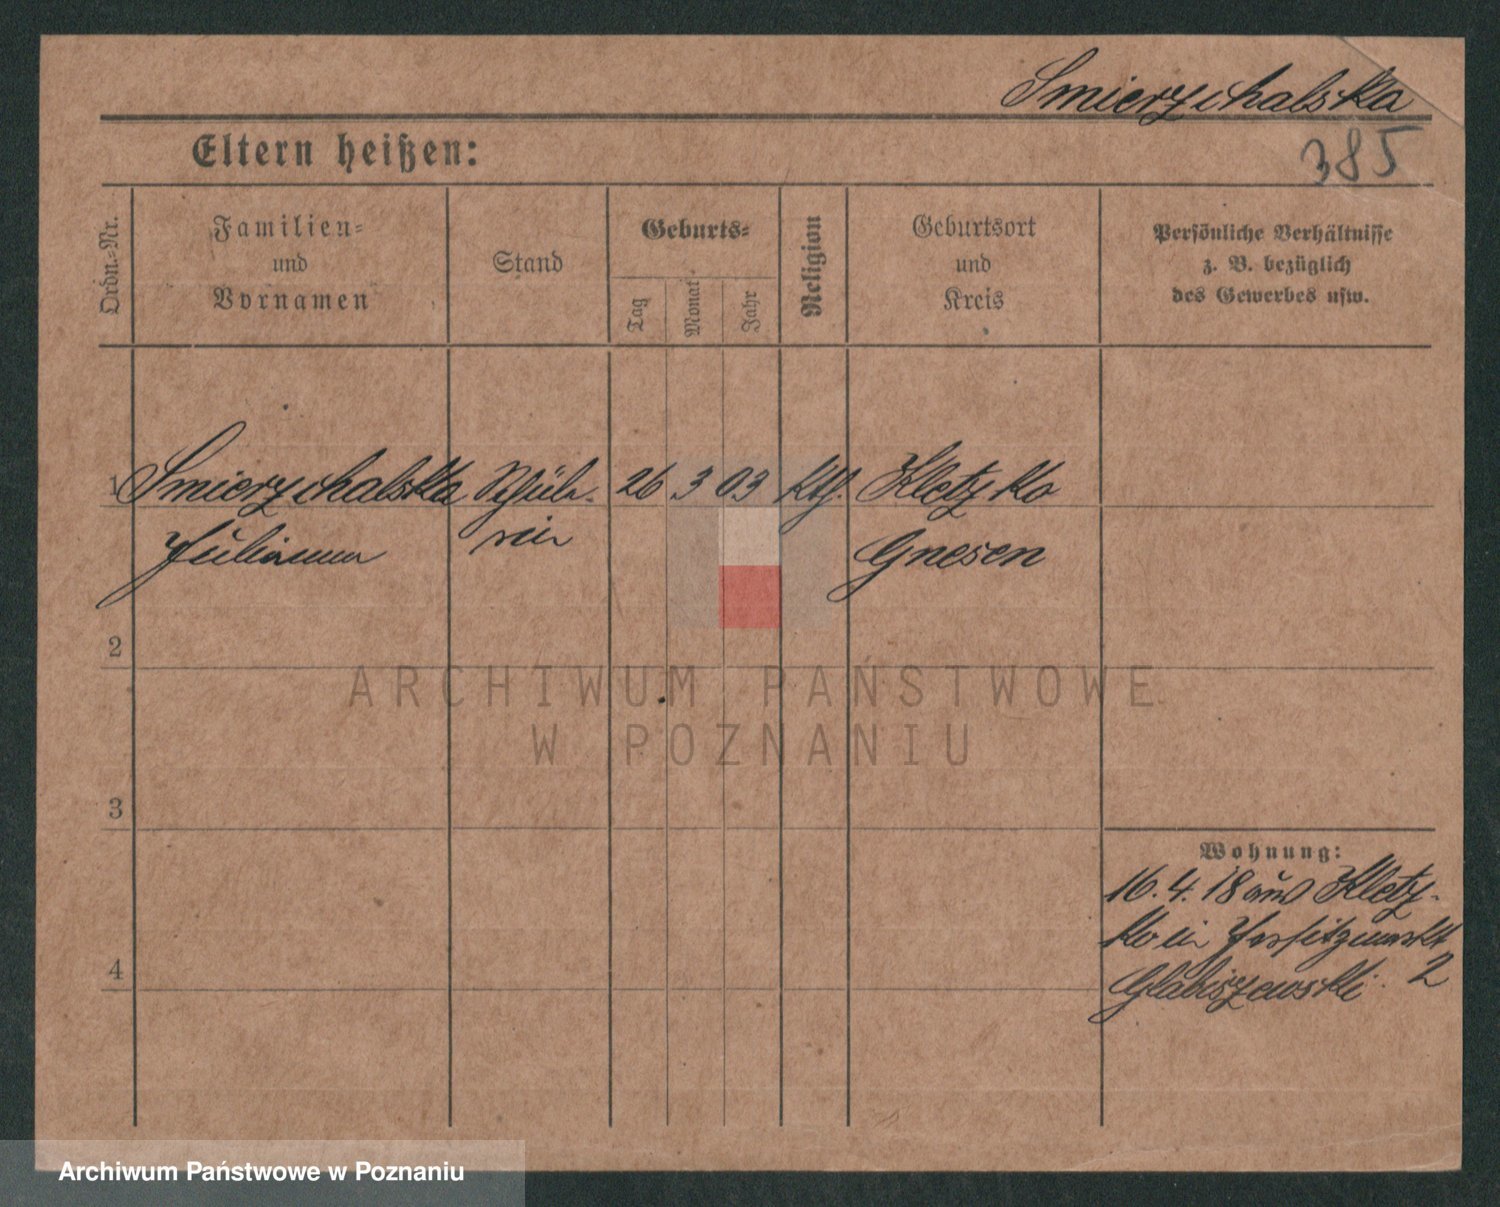 Smierzchalska
Eltern heißen:
385
Ordn.-Nr.
Familien-
und
Vornamen
Stand
Geburts-
Tag
Monat
Jahr
Religion
Geburtsort
und
Kreis
Persönliche Verhältnisse
z. B. bezüglich
des Gewerbes usw.
1 Smierzchalska Schüle- 26 3 03 kth. Kletzko
Julianna rin Gnesen
2
3
4
Wohnung:
16. 4. 18 aus Kletz-
ko in
2
Glabiszewski
ARCHIWUM PAŃSTWOWE
W POZNANIU
Archiwum Państwowe w Poznaniu